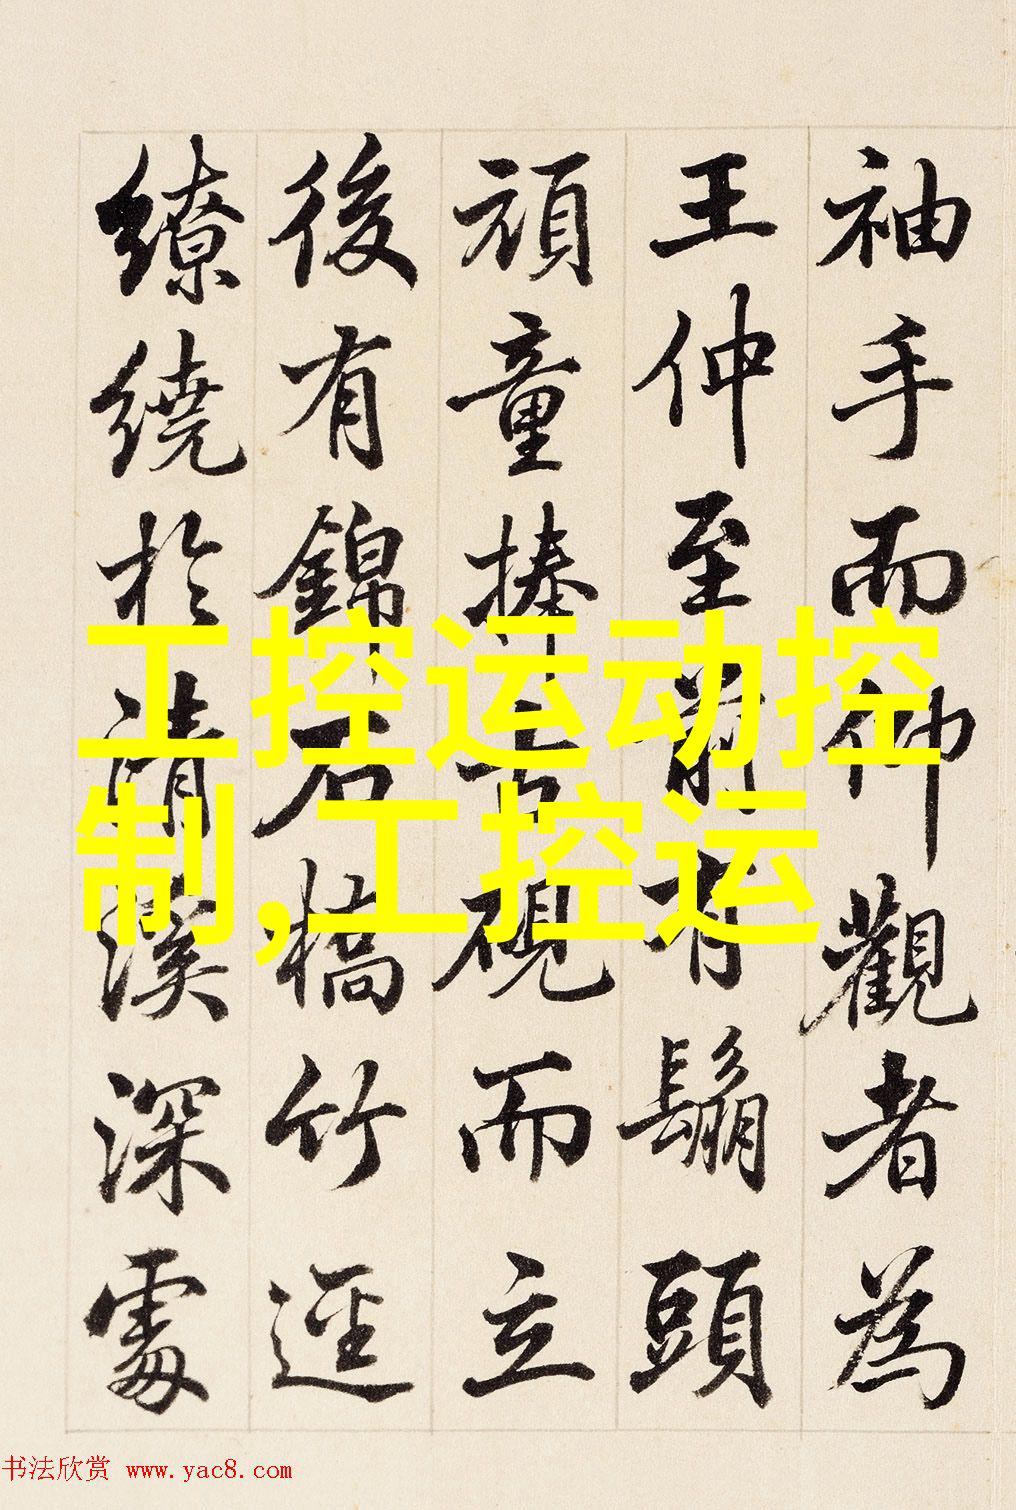 袖手而仰觀者為
王仲至前有鬅頭
頑童捧古硯而立
後有錦石橋竹逕
繚繞於清溪深處
工控运动控
制,工控运
书法欣赏 www.yac8.com